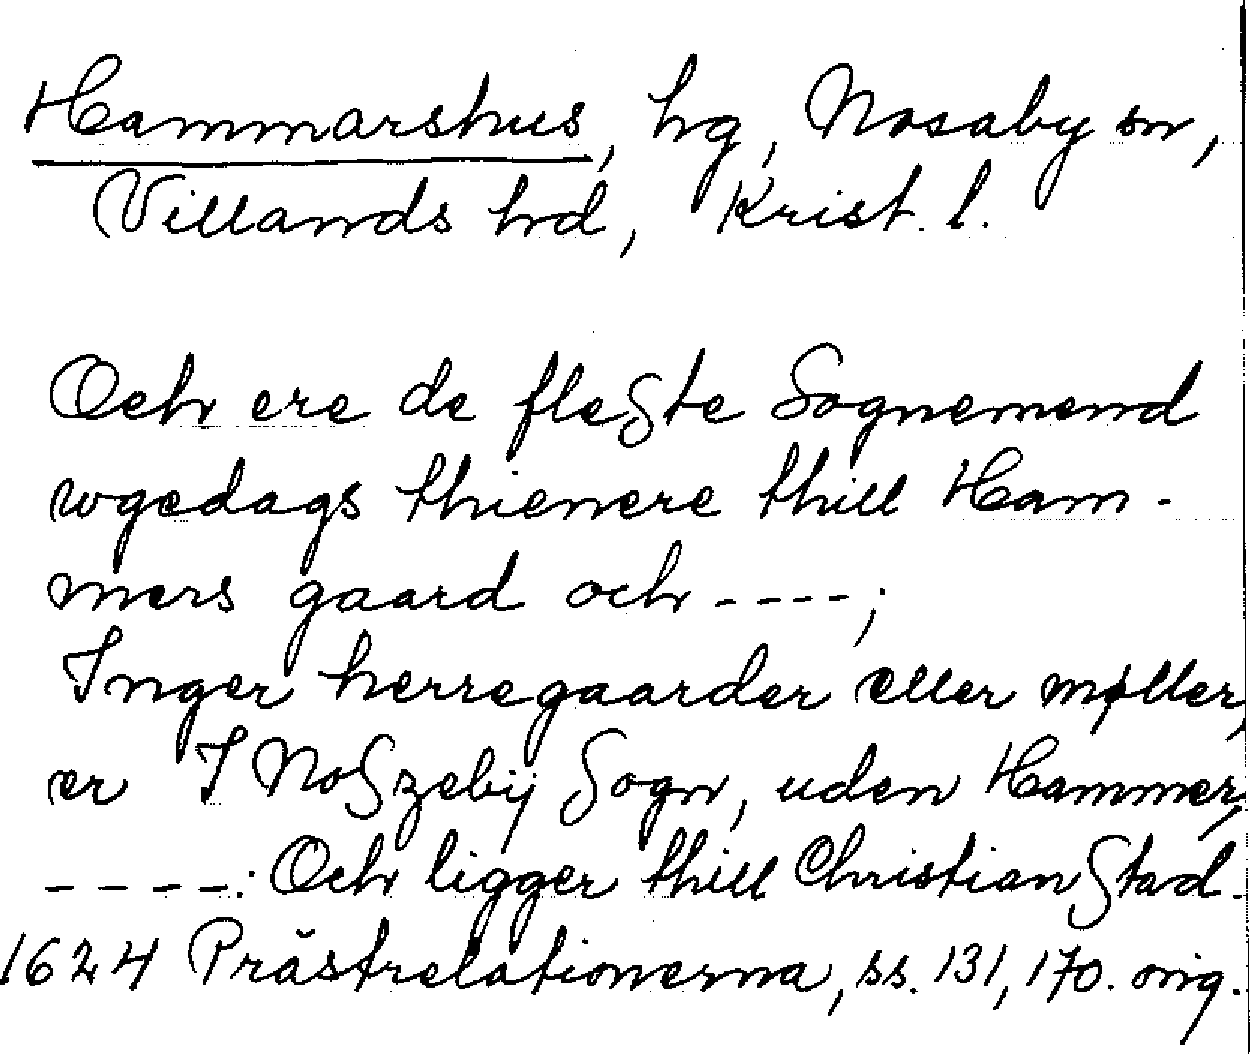 Hammarshus, hg, Nosaby sn,
Villands hd, Krist. l.
Och ere de fleste Sognemend
wgedags thienere thill Ham-
mers gaard och ----;
Inger herregaarder eller møller,
er I Noszebÿ Sogn, uden Hammer,
----: Och ligger thill Christianstad.
1624 Prästrelationerna, ss. 131, 170. orig.